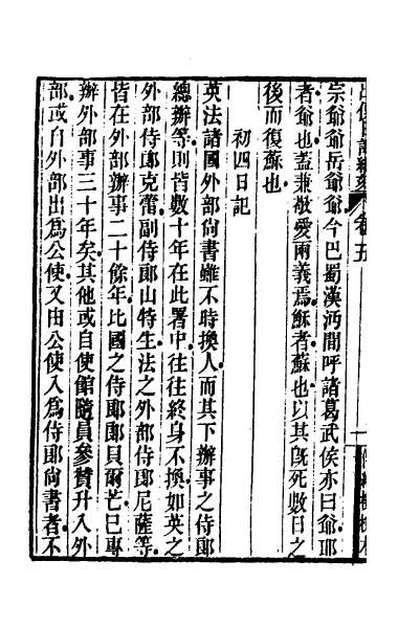 出使日記續刻 卷五
宗爺爺岳爺爺今巴蜀漢沔間呼諸葛武侯亦曰爺耶
者爺也蓋兼敬愛兩義焉穌者蘇也以其旣死數日之
後而復蘇也
初四日記
英法諸國外部尙書雖不時換人而其下辦事之侍郞
總辦等則皆數十年在此署中往往終身不換如英之
外部侍郞克蕾副侍郞山特生法之外部侍郞尼薩等
皆在外部辦事二十餘年比國之侍郞郞貝爾芒巳專
辦外部事三十年矣其他或自使館隨員參贊升入外
部或自外部出爲公使又由公使入爲侍郞尙書者不